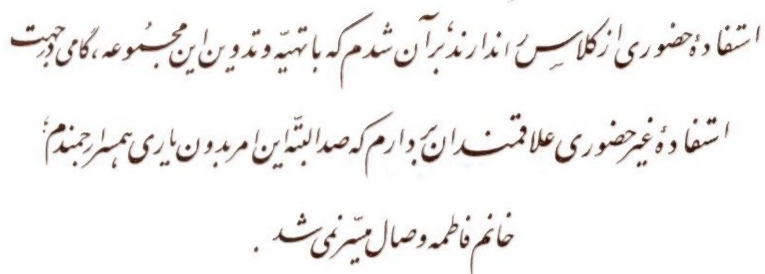 استفادهٔ حضوری از کلاس را ندارند، برآن شدم که با تهیّه و تدوین این مجموعه، گامی در جهت
استفادهٔ غیرحضوری علاقمندان بردارم که صد البتّه این امر بدون یاری همسر ارجمندم؛
خانم فاطمه وصال میسّر نمی شد .